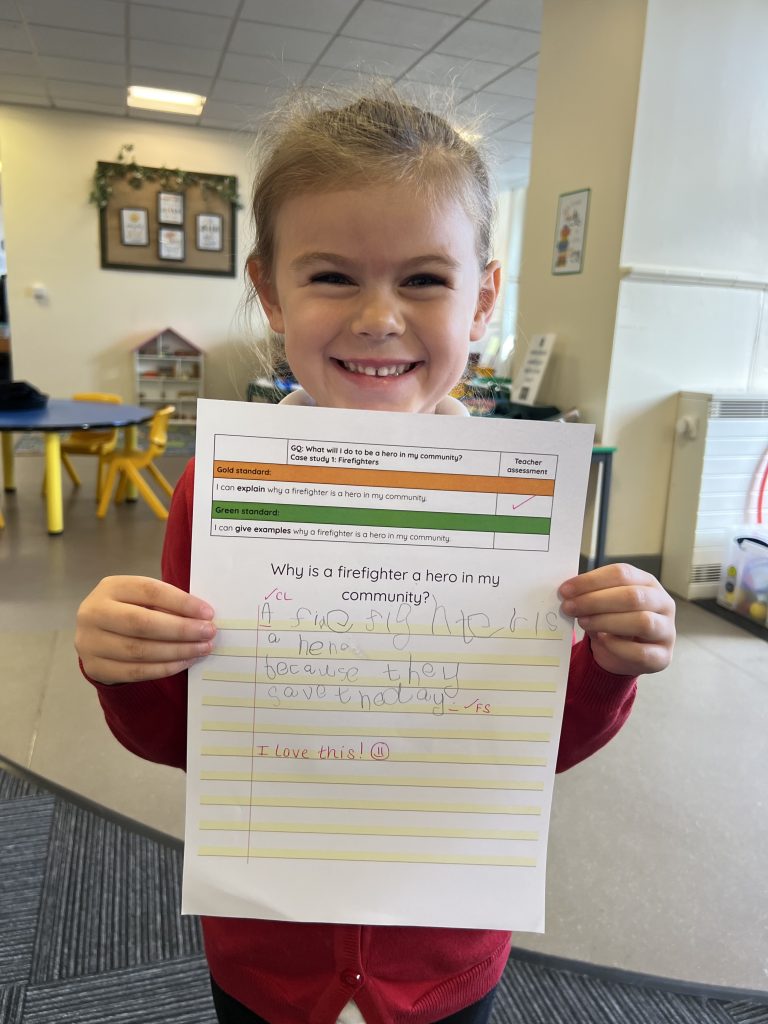 GQ: What will I do to be a hero in my community?
Case study 1: Firefighters
Teacher assessment
Gold standard:
I can explain why a firefighter is a hero in my community.
Green standard:
I can give examples why a firefighter is a hero in my community.
Why is a firefighter a hero in my
community?
✓CL
A fire fighter is
a hero
because they
save the day. ✓FS
I love this!